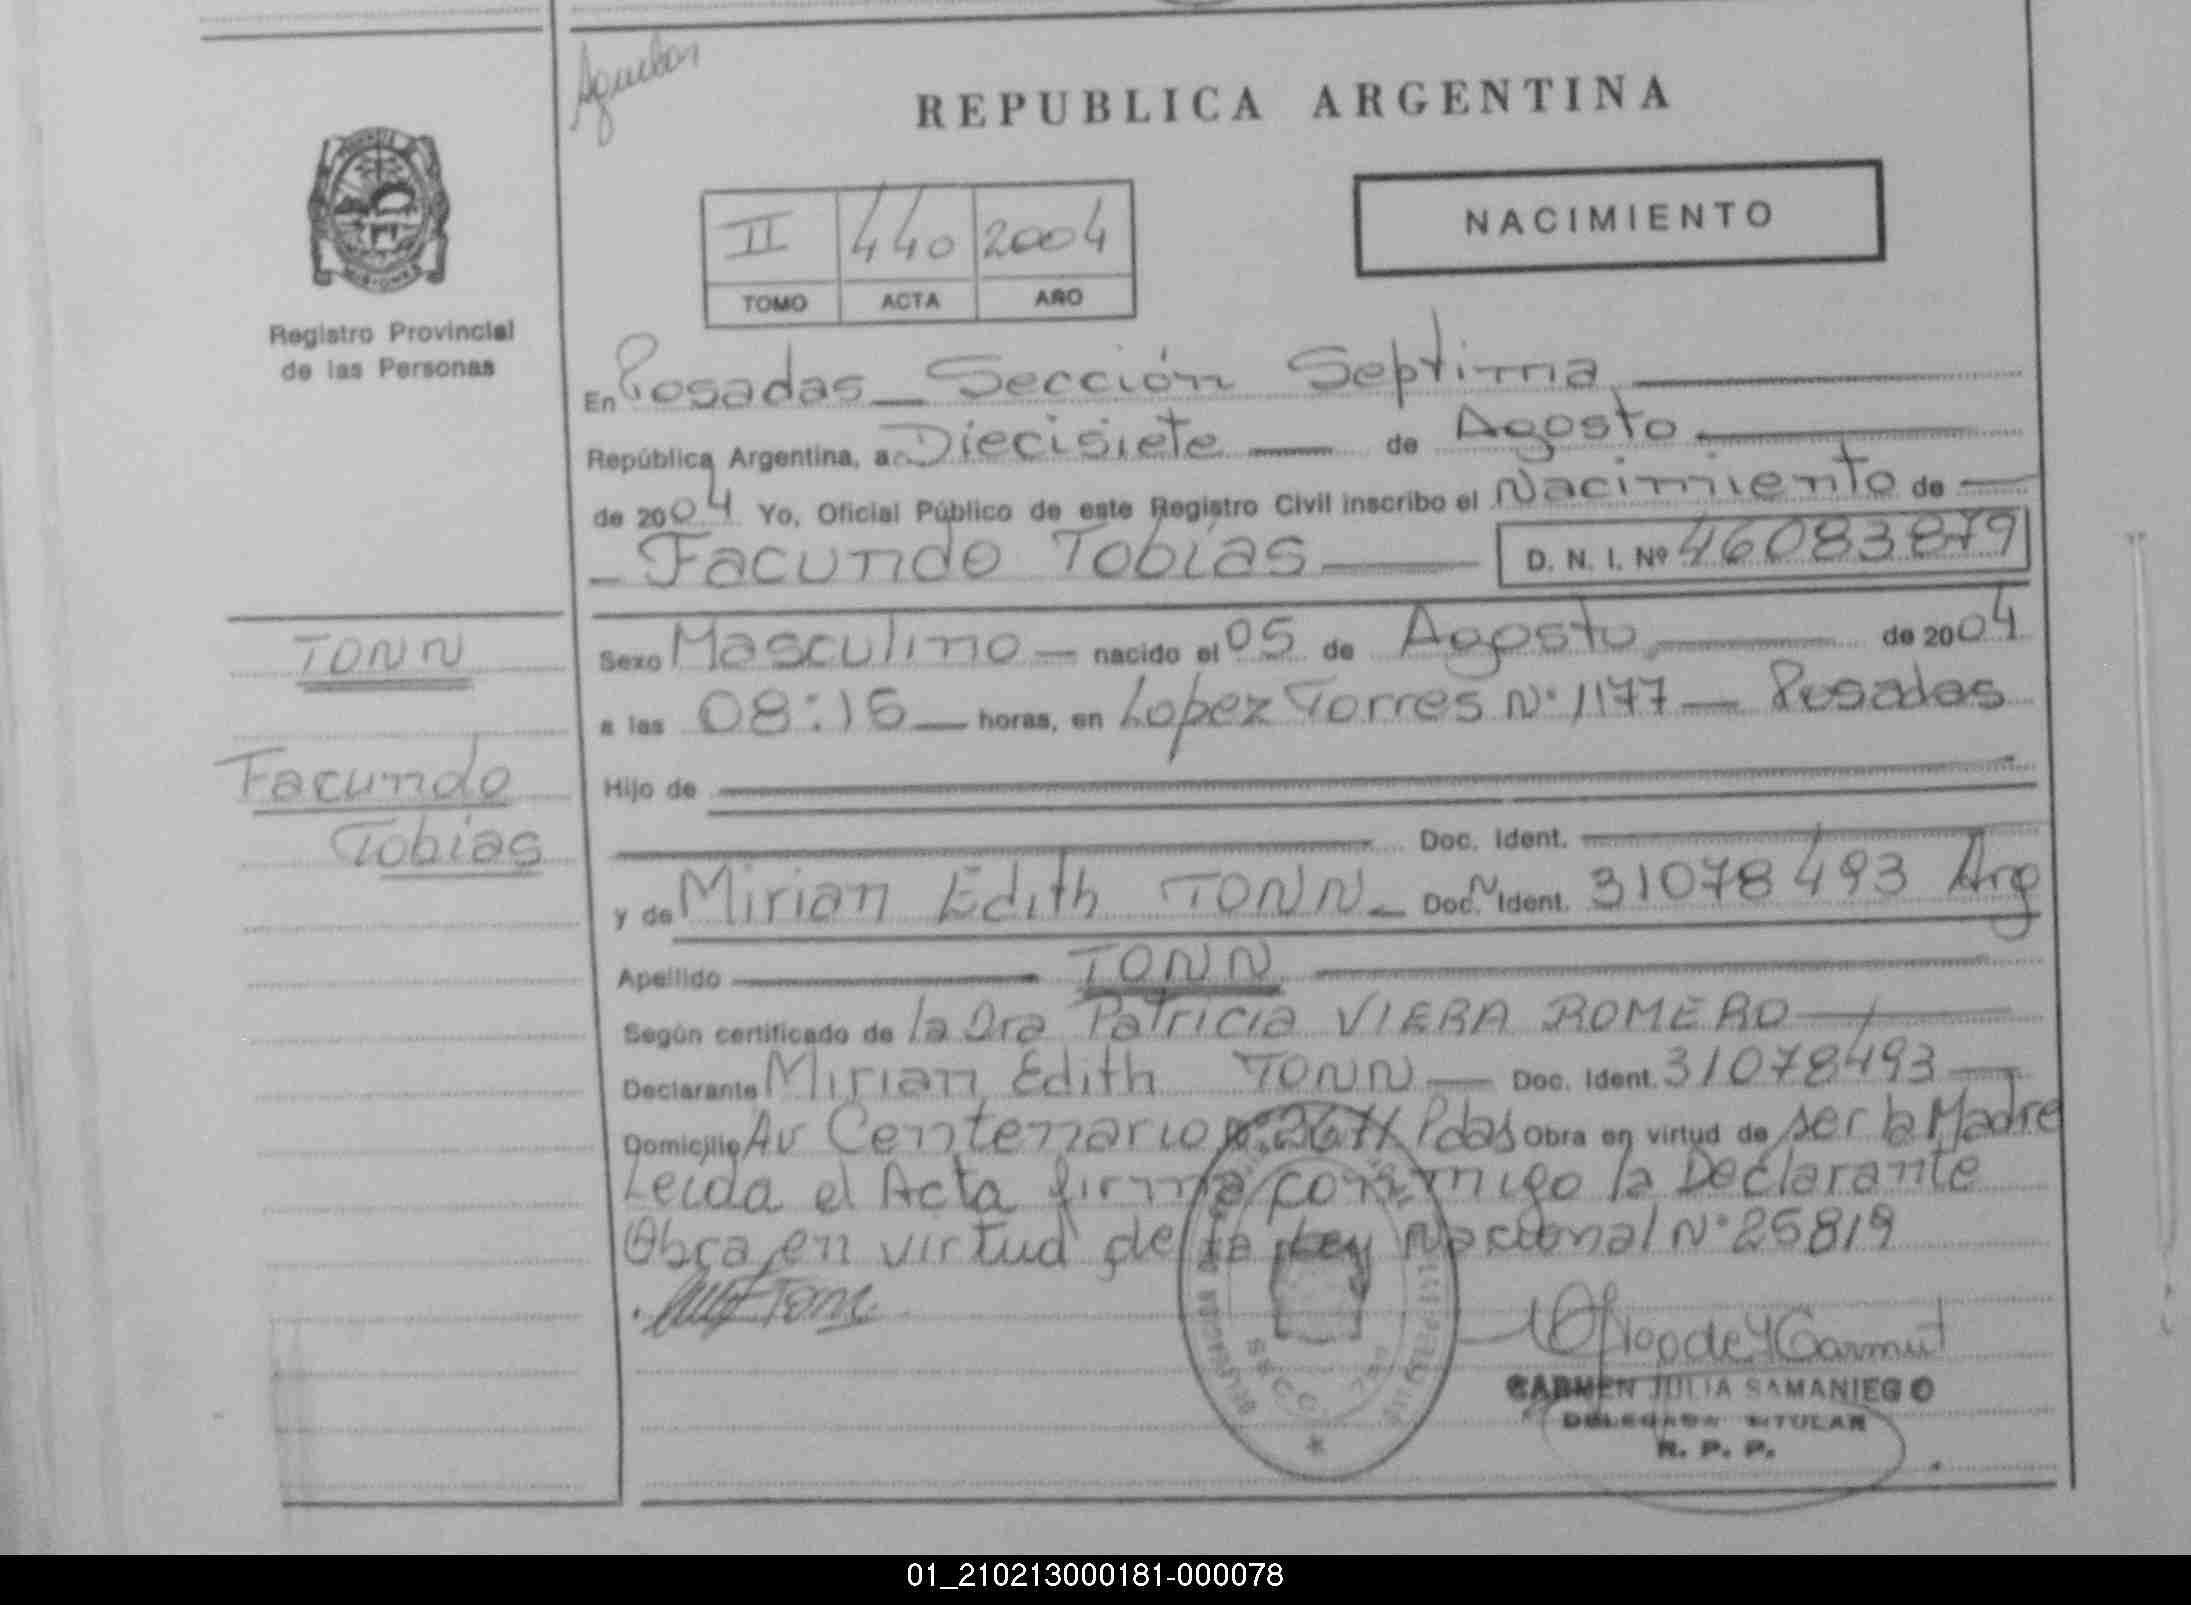 REPUBLICA ARGENTINA
NACIMIENTO
II 440 2004
TOMO ACTA AÑO
Registro Provincial
de las Personas
En Posadas _ Sección Septima
República Argentina, a Diecisiete de Agosto
de 2004 Yo, Oficial Público de este Registro Civil inscribo el Nacimiento de
Facundo Tobias D. N. I. Nº 46083879
TONN
Facundo
Tobias
Sexo Masculino nacido el 05 de Agosto de 2004
a las 08:15 horas, en Lopez Torres Nº 1177 _ Posadas
Hijo de
Doc. Ident.
y de Mirian Edith TONN _ Doc. N Ident. 31078493 Arg
Apellido TONN
Según certificado de la Dra Patricia VIERA ROMERO
Declarante Mirian Edith TONN Doc. Ident. 31078493
Domicilio Av Centenario Pdas Obra en virtud de ser la Madre
Leida el Acta firma conmigo la Declarante
Obra en virtud de la Ley Nacional Nº 25819
CARMEN JULIA SAMANIEGO
DELEGADA TITULAR
R. P. P.
01_210213000181-000078